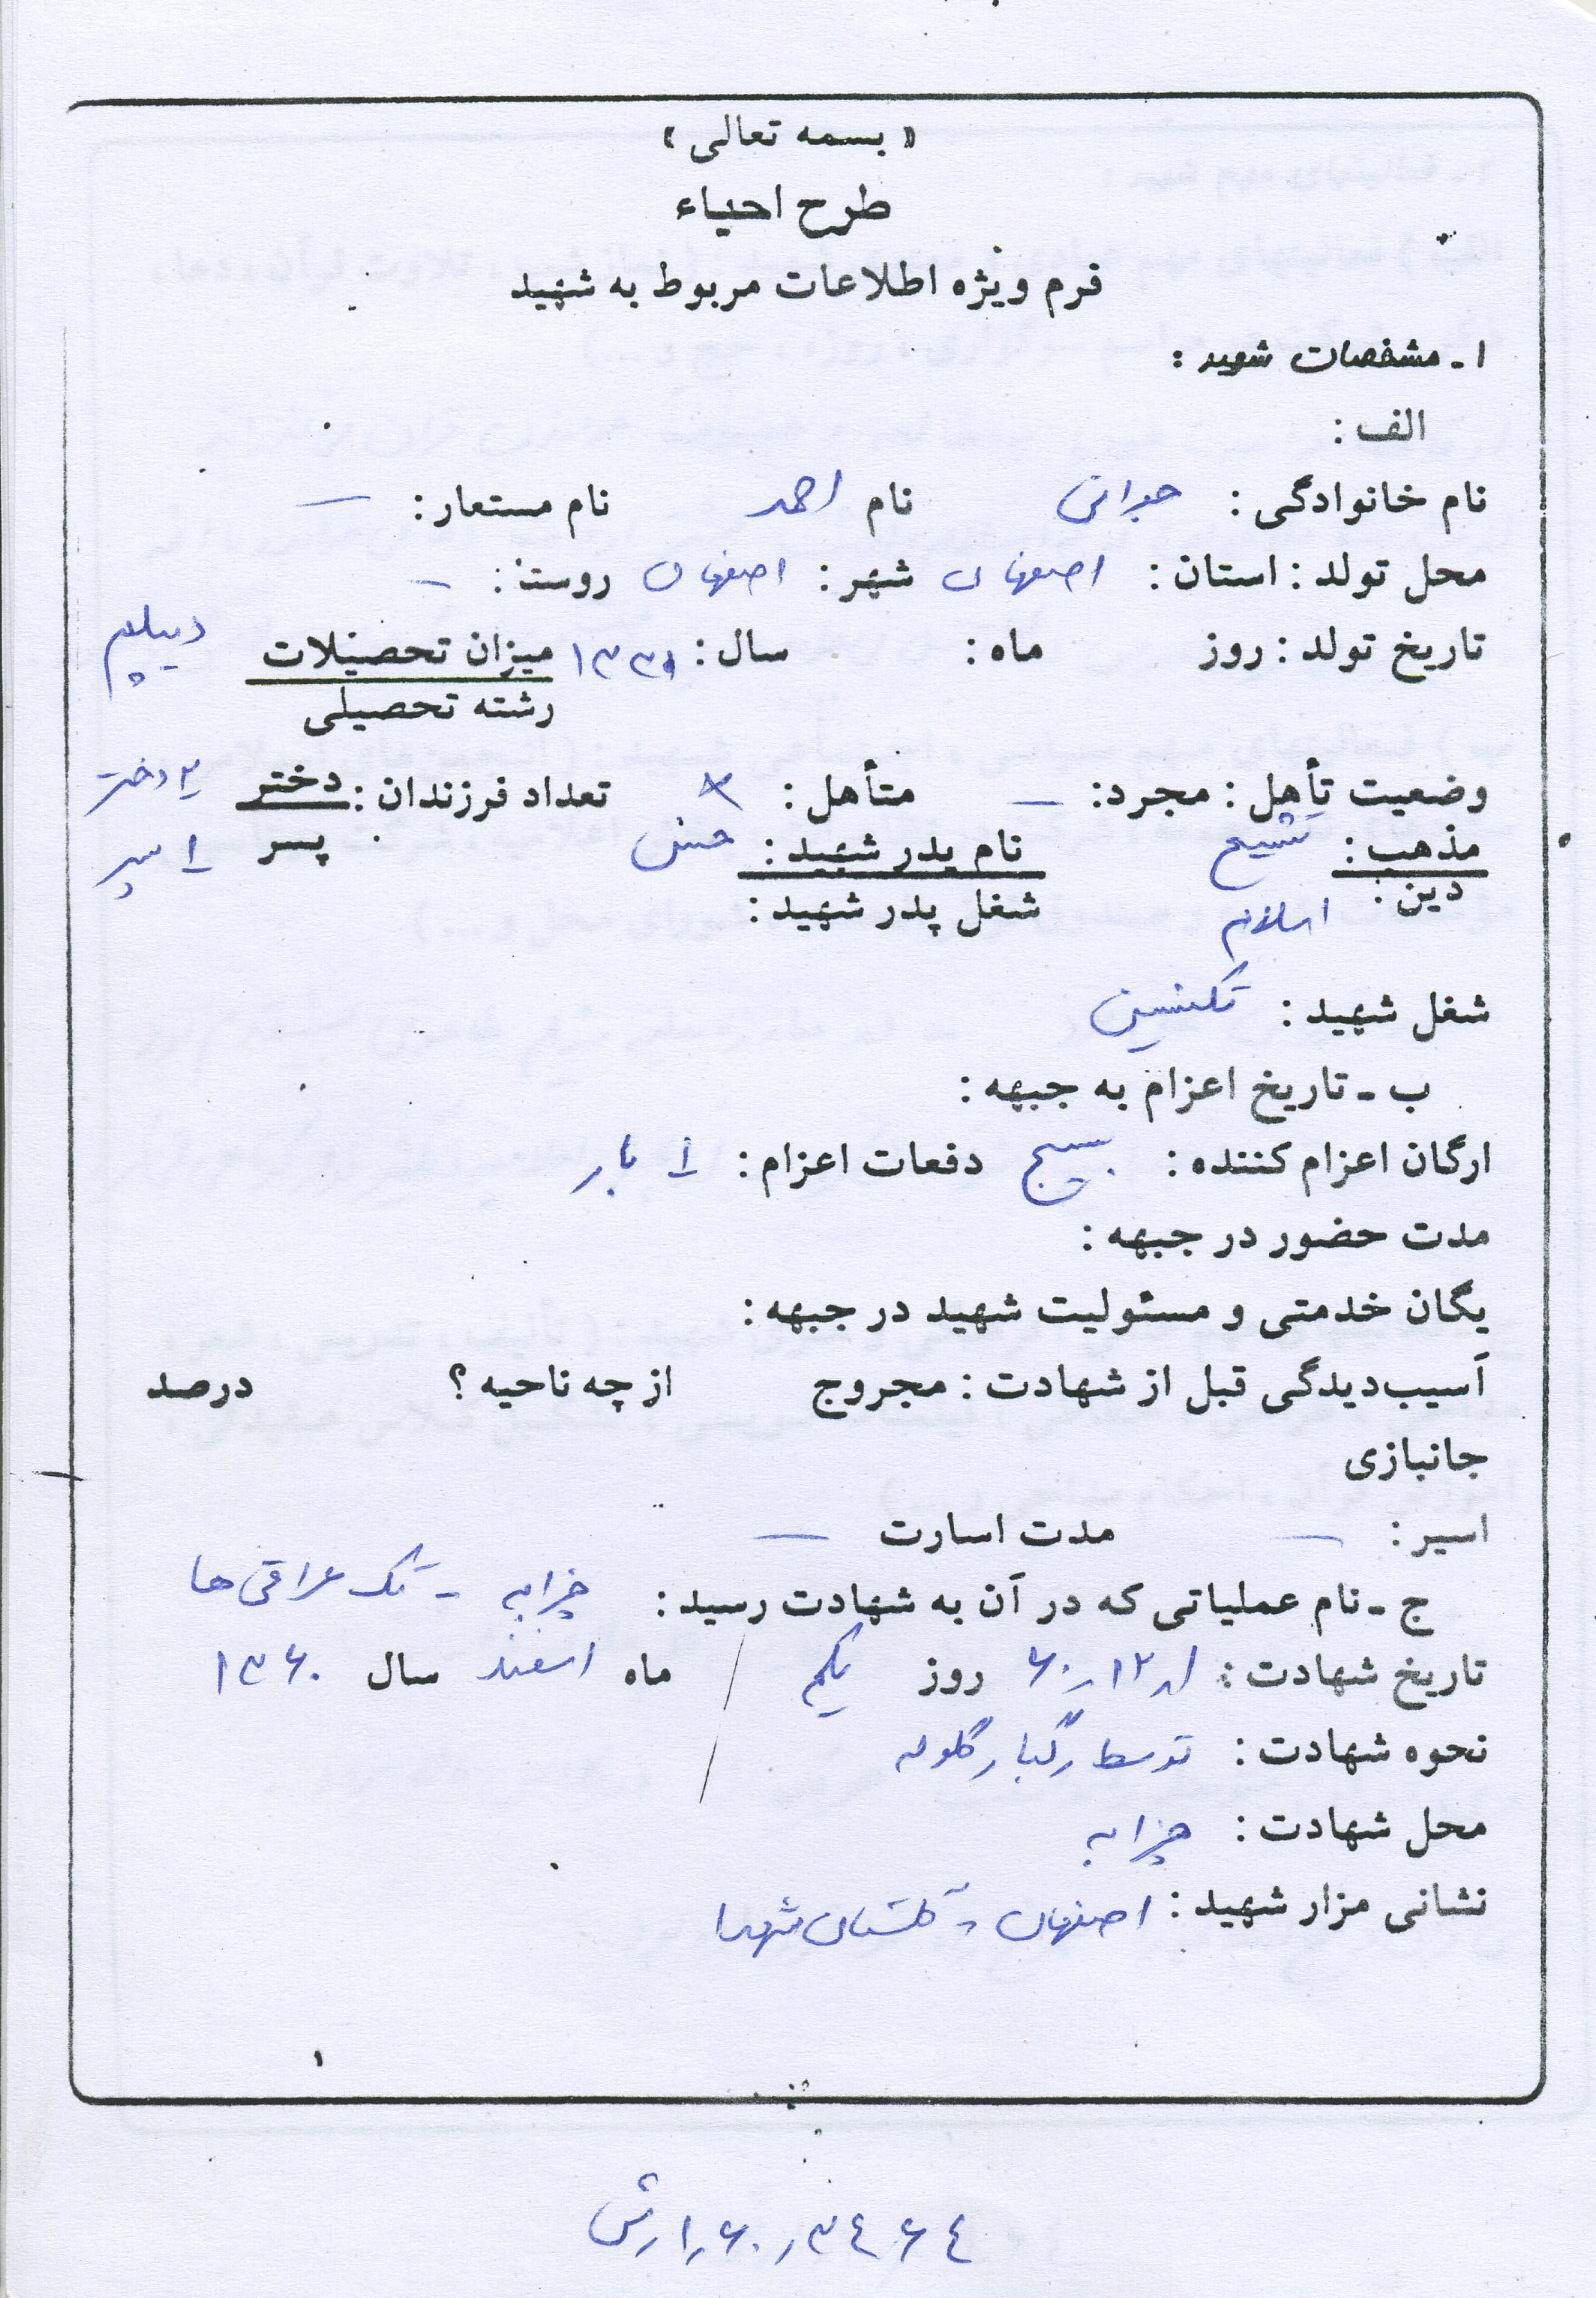 « بسمه تعالی »
طرح احیاء
فرم ویژه اطلاعات مربوط به شهید
۱ـ مشخصات شهید :
الف :
نام خانوادگی : نام احمد نام مستعار : —
محل تولد : استان : اصفهان شهر : اصفهان روستا : —
تاریخ تولد : روز ماه : سال : میزان تحصیلات دیپلم
رشته تحصیلی
وضعیت تأهل : مجرد : — متأهل : × تعداد فرزندان : دختر ۲ دختر
مذهب : تشیع نام پدر شهید : حسن پسر ۱ پسر
دین : اسلام شغل پدر شهید :
شغل شهید : تکنسین
ب ـ تاریخ اعزام به جبهه :
ارگان اعزام کننده : بسیج دفعات اعزام : ۱ بار
مدت حضور در جبهه :
یگان خدمتی و مسئولیت شهید در جبهه :
آسیب‌دیدگی قبل از شهادت : مجروح از چه ناحیه ؟ درصد
جانبازی
اسیر : — مدت اسارت —
ج ـ نام عملیاتی که در آن به شهادت رسید : چزابه - تک عراقی ها
تاریخ شهادت : ۱ر۱۲ر۶۰ روز یکم / ماه اسفند سال ۱۳۶۰
نحوه شهادت : توسط رگبار گلوله
محل شهادت : چزابه
نشانی مزار شهید : اصفهان - گلستان شهدا
۱